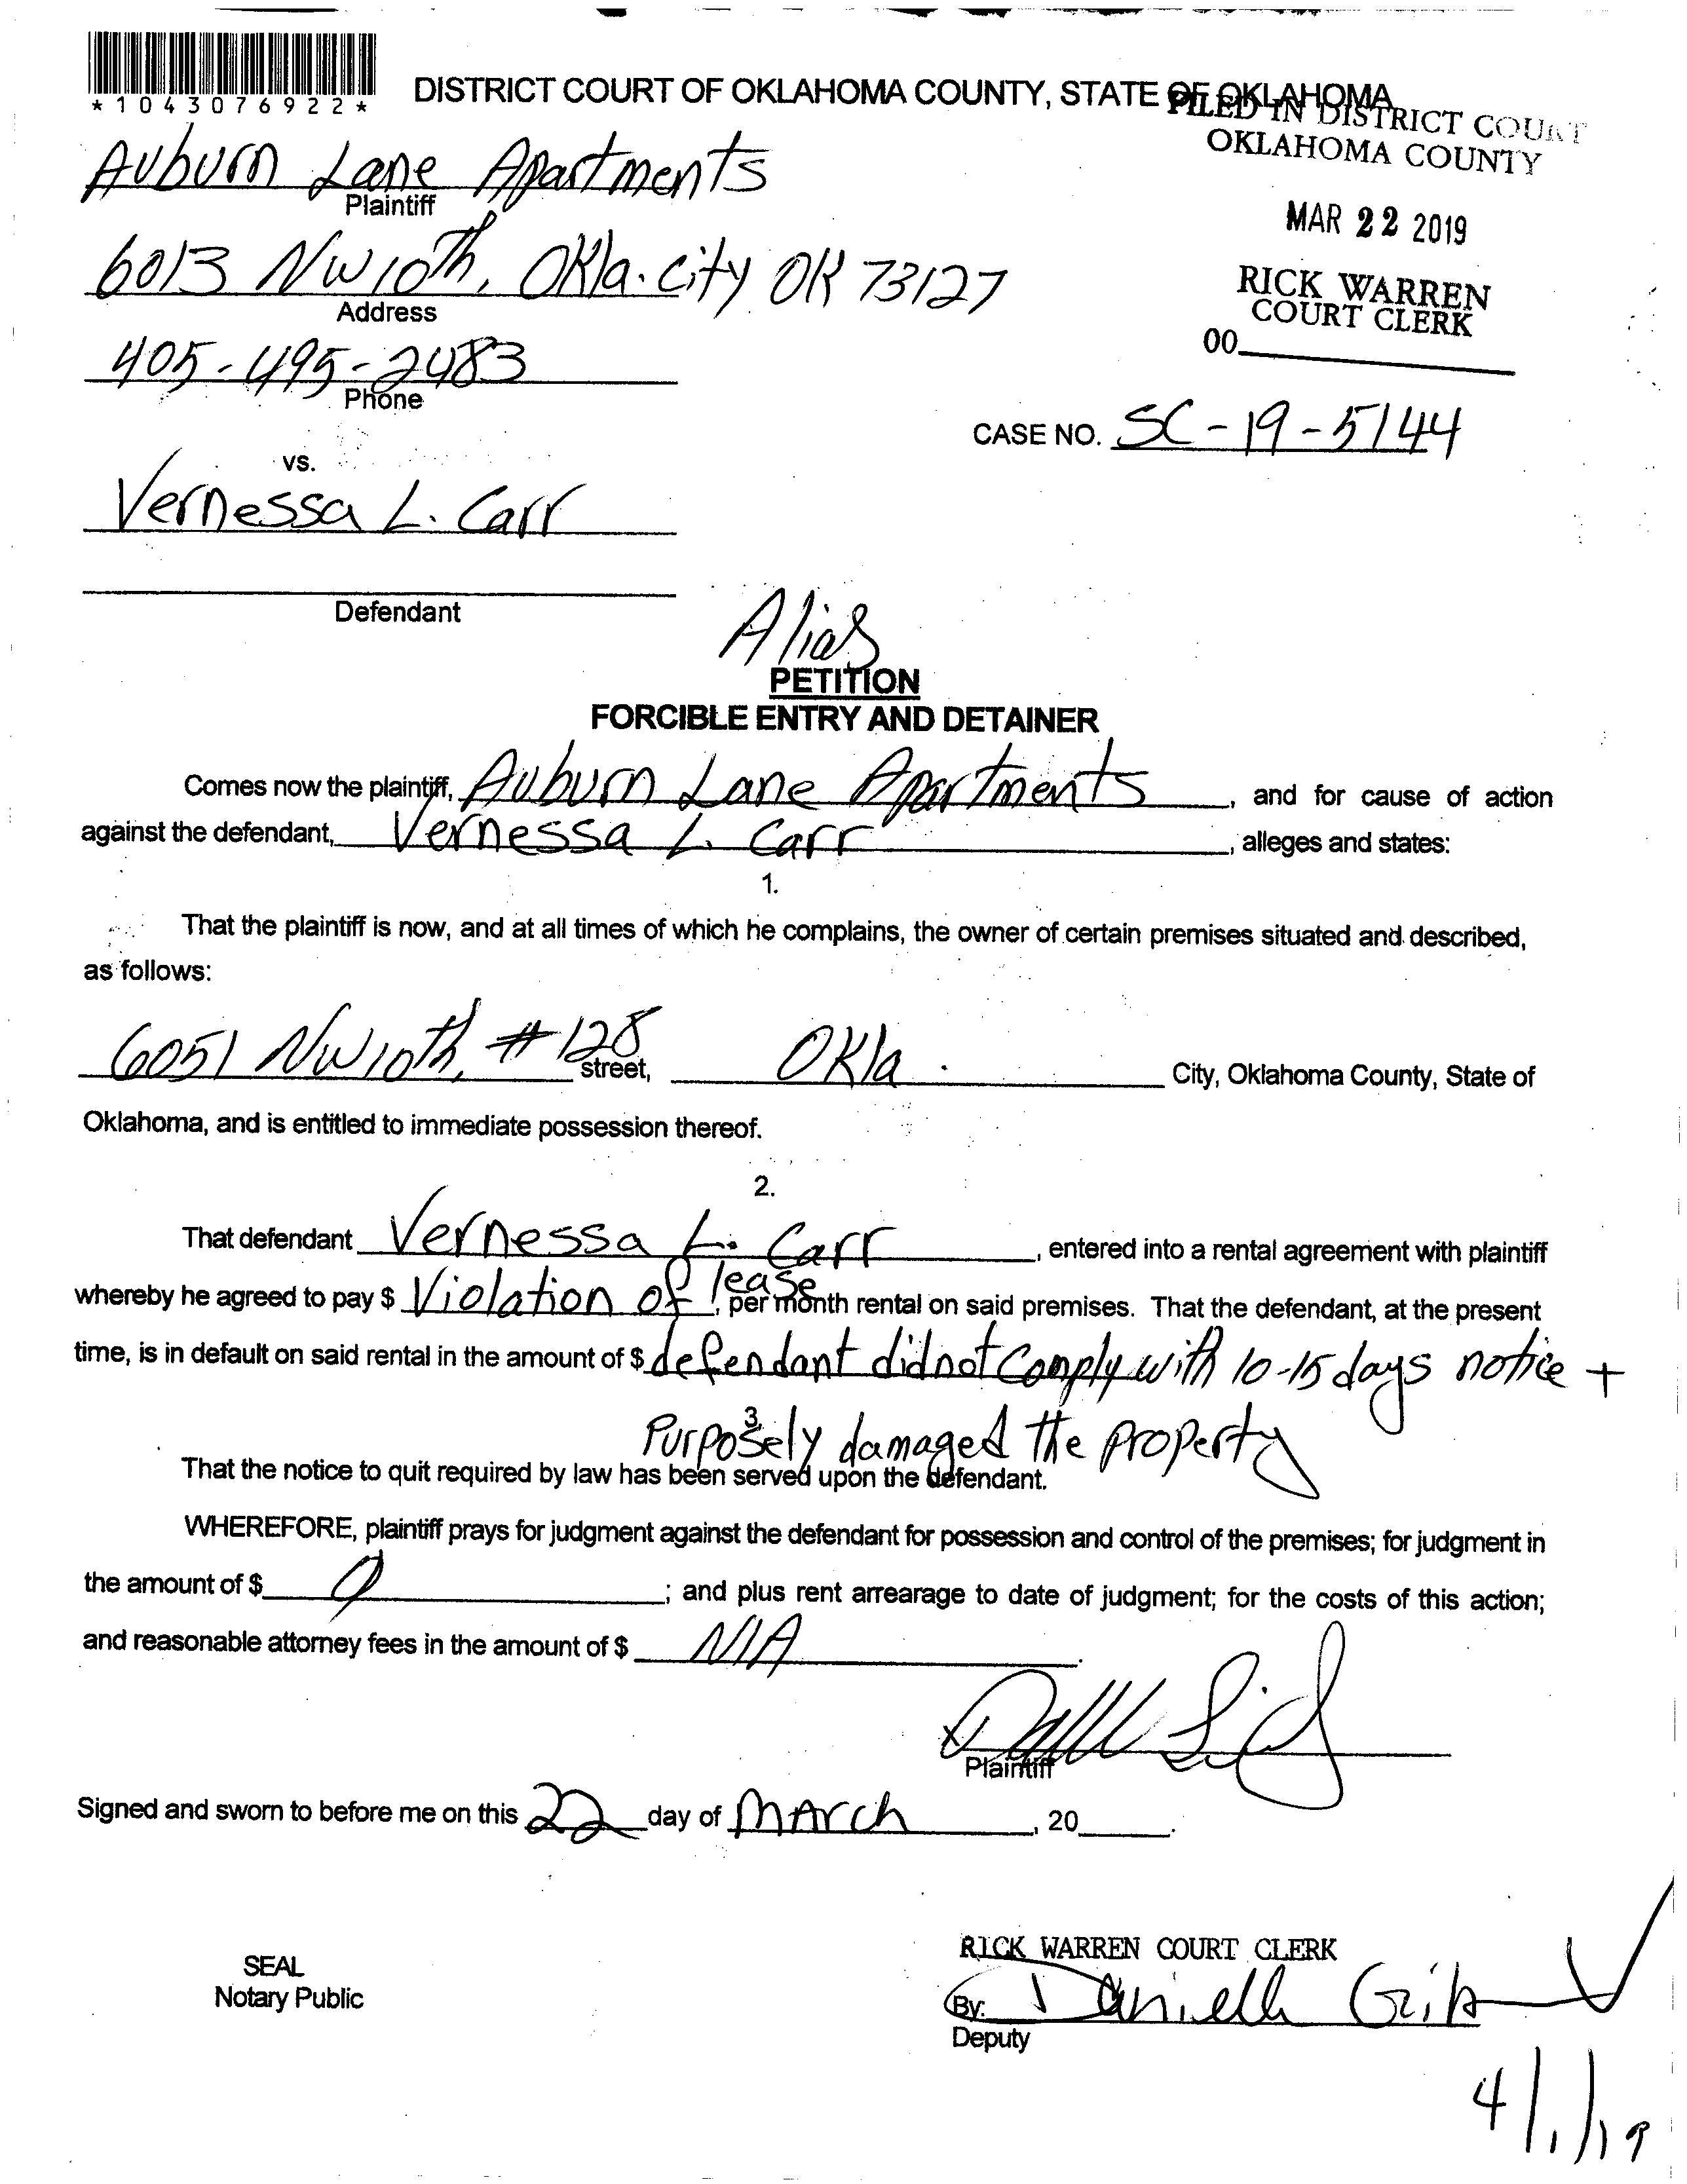 *1043076922*
DISTRICT COURT OF OKLAHOMA COUNTY, STATE OF OKLAHOMA
FILED IN DISTRICT COURT
OKLAHOMA COUNTY
MAR 22 2019
RICK WARREN
COURT CLERK
00
Auburn Lane Apartments
Plaintiff
6013 NW 10th, Okla. City OK 73127
Address
405-495-2483
Phone
CASE NO. SC-19-5144
vs.
Vernessa L. Carr
Defendant
Alias
PETITION
FORCIBLE ENTRY AND DETAINER
Comes now the plaintiff, Auburn Lane Apartments, and for cause of action
against the defendant, Vernessa L. Carr, alleges and states:
1.
That the plaintiff is now, and at all times of which he complains, the owner of certain premises situated and described,
as follows:
6051 NW 10th, #128 street, Okla. City, Oklahoma County, State of
Oklahoma, and is entitled to immediate possession thereof.
2.
That defendant Vernessa L. Carr, entered into a rental agreement with plaintiff
whereby he agreed to pay $ Violation of lease, per month rental on said premises. That the defendant, at the present
time, is in default on said rental in the amount of $ defendant did not comply with 10-15 days notice +
Purposely damaged the property
3.
That the notice to quit required by law has been served upon the defendant.
WHEREFORE, plaintiff prays for judgment against the defendant for possession and control of the premises; for judgment in
the amount of $ 0; and plus rent arrearage to date of judgment; for the costs of this action;
and reasonable attorney fees in the amount of $ N/A.
X
Plaintiff
Signed and sworn to before me on this 22 day of March, 20 .
SEAL
Notary Public
RICK WARREN COURT CLERK
By: Danielle
Deputy
4/1/19